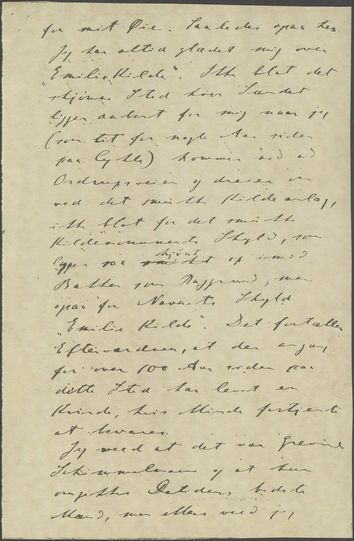 for mit Øie. Saaledes ogsaa her
Jeg har altid glædet mig over
"Emilie Kilde". Ikke blot det
skjønne Sted hvor Sundet
ligger aabent for mig naar jeg
(som tit for nogle Aar siden
paa Cykle) kommer ned ad
Ordrupveien og dreier om
ved det smukke Kildeanlæg,
ikke blot for det smukke
Kildemonuments Skyld, som
ligger saa skjønt op imod
Bakken som Baggrund, men
ogsaa for Navnets Skyld
"Emilie Kilde". Det fortæller
Efterverdenen, at der engang
for over 100 Aar siden paa
dette Sted har levet en
Kvinde, hvis Minde fortjente
at bevares.
Jeg veed at det var Grevinde
Schimmelmann og at hun
Datidens bedste
Mænd, men ellers veed jeg,